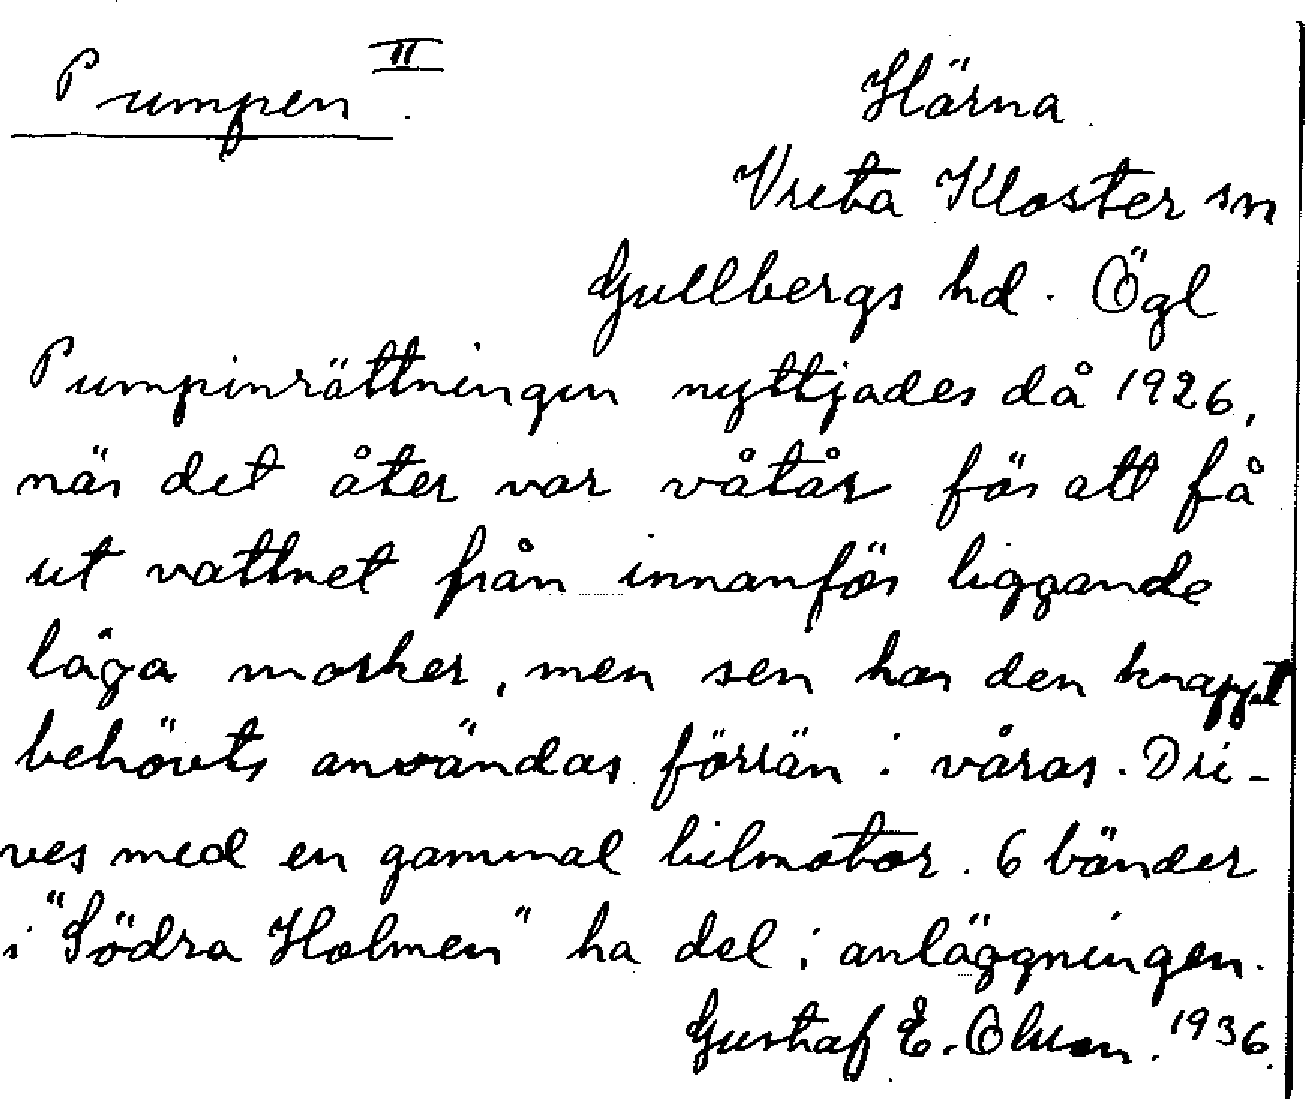 Pumpen II.
Härna
Vreta Kloster sn
Gullbergs hd. Ögl
Pumpinrättningen nyttjades då 1926,
när det åter var våtår för att få
ut vattnet från innanför liggande
låga marker, men sen har den knappt
behövts användas förrän i våras. Dri-
ves med en gammal bilmotor. 6 bönder
i "Södra Holmen" ha del i anläggningen.
Gustaf E. Olsson. 1936.